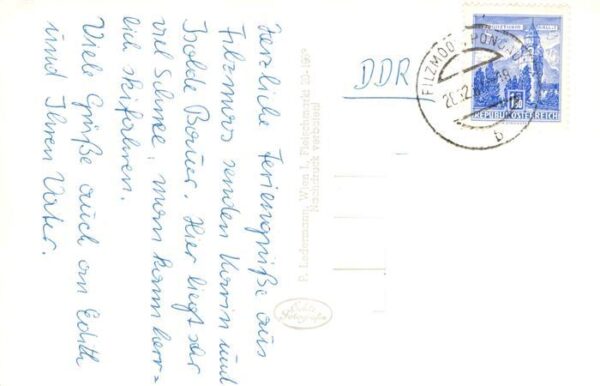 Herzliche Feriengrüße aus
Filzmoos senden Karin und
Isolde Bauer. Hier liegt sehr
viel Schnee, man kann herr=
lich skifahren.
Viele Grüße auch an Edith
und Ihren Vater.
P. Ledermann, Wien I, Fleischmarkt 20
Nachdruck verboten!
Echte
Fotografie
DDR
FILZMOOS
b
REPUBLIK ÖSTERREICH